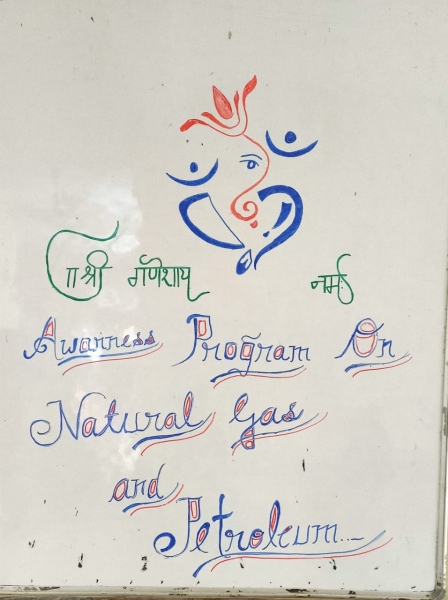 ॥श्री गणेशाय नमः
Awarness Program On
Natural Gas
and
Petroleum...